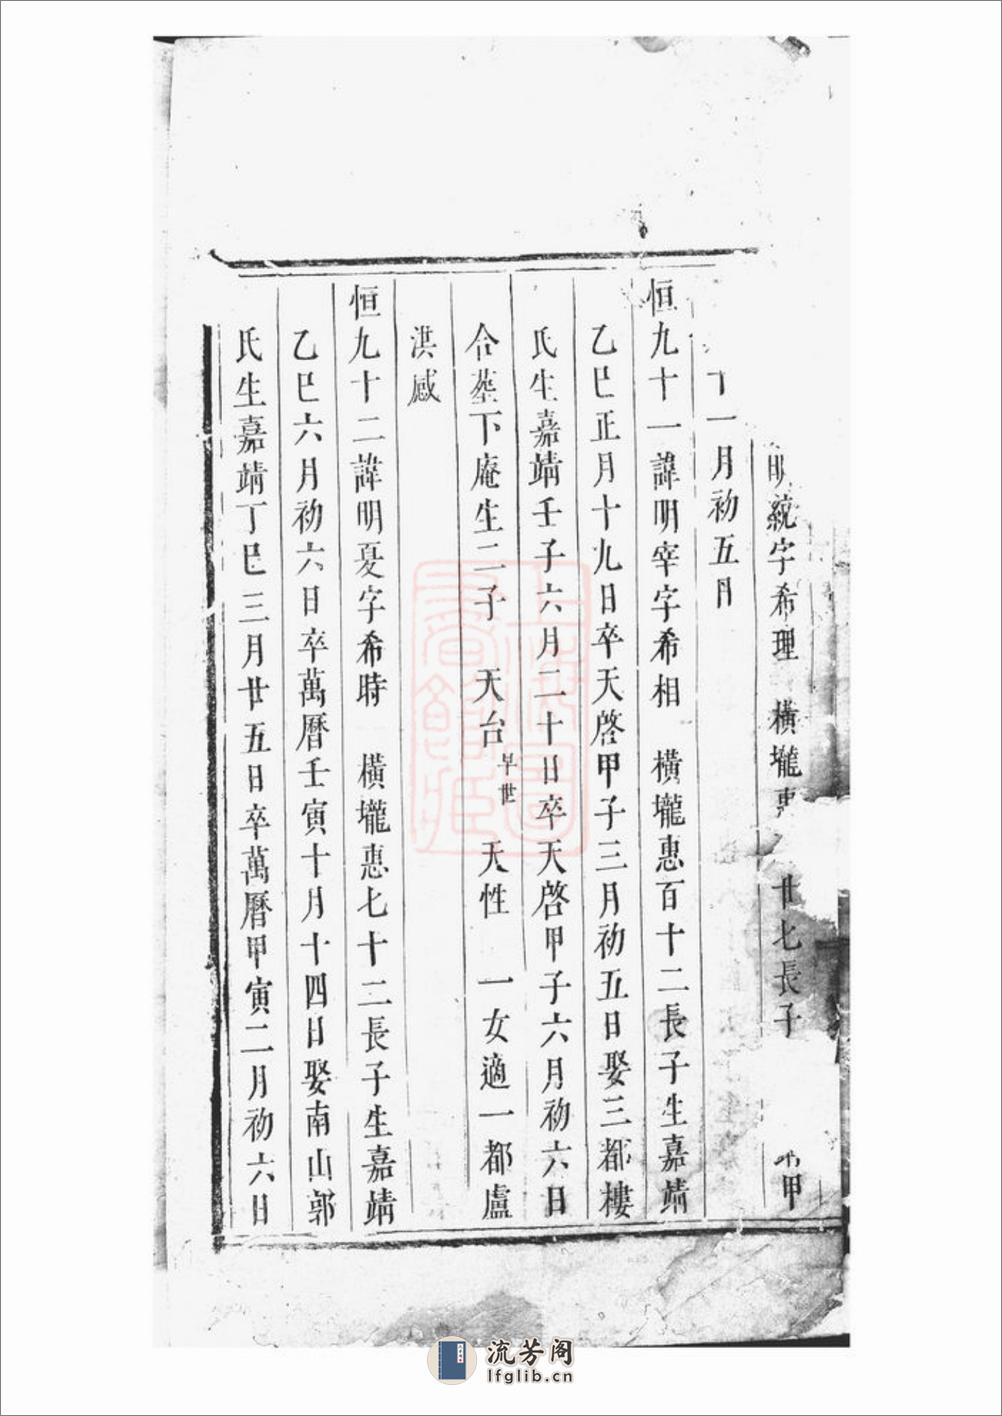 明統字希理　橫壠惠　廿七長子　甲
十一月初五日
恒九十一諱明宰字希相　橫壠惠百十二長子生嘉靖
乙巳正月十九日卒天啓甲子三月初五日娶三都樓
氏生嘉靖壬子六月二十日卒天啓甲子六月初六日
合塟下庵生二子　天台早世　天性　一女適一都盧
洪感
恒九十二諱明夏字希時　橫壠惠七十二長子生嘉靖
乙巳六月初六日卒萬曆壬寅十月十四日娶南山郭
氏生嘉靖丁巳三月廿五日卒萬曆甲寅二月初六日
流芳阁
lfglib.cn